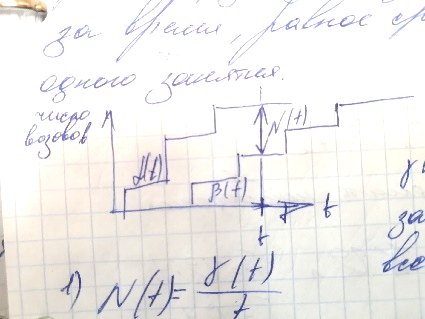 за время, равное ср
одного занятия.
число
вызовов
N(t)
β(t)
t
t
за
все
1) N(t)= γ(t)/t